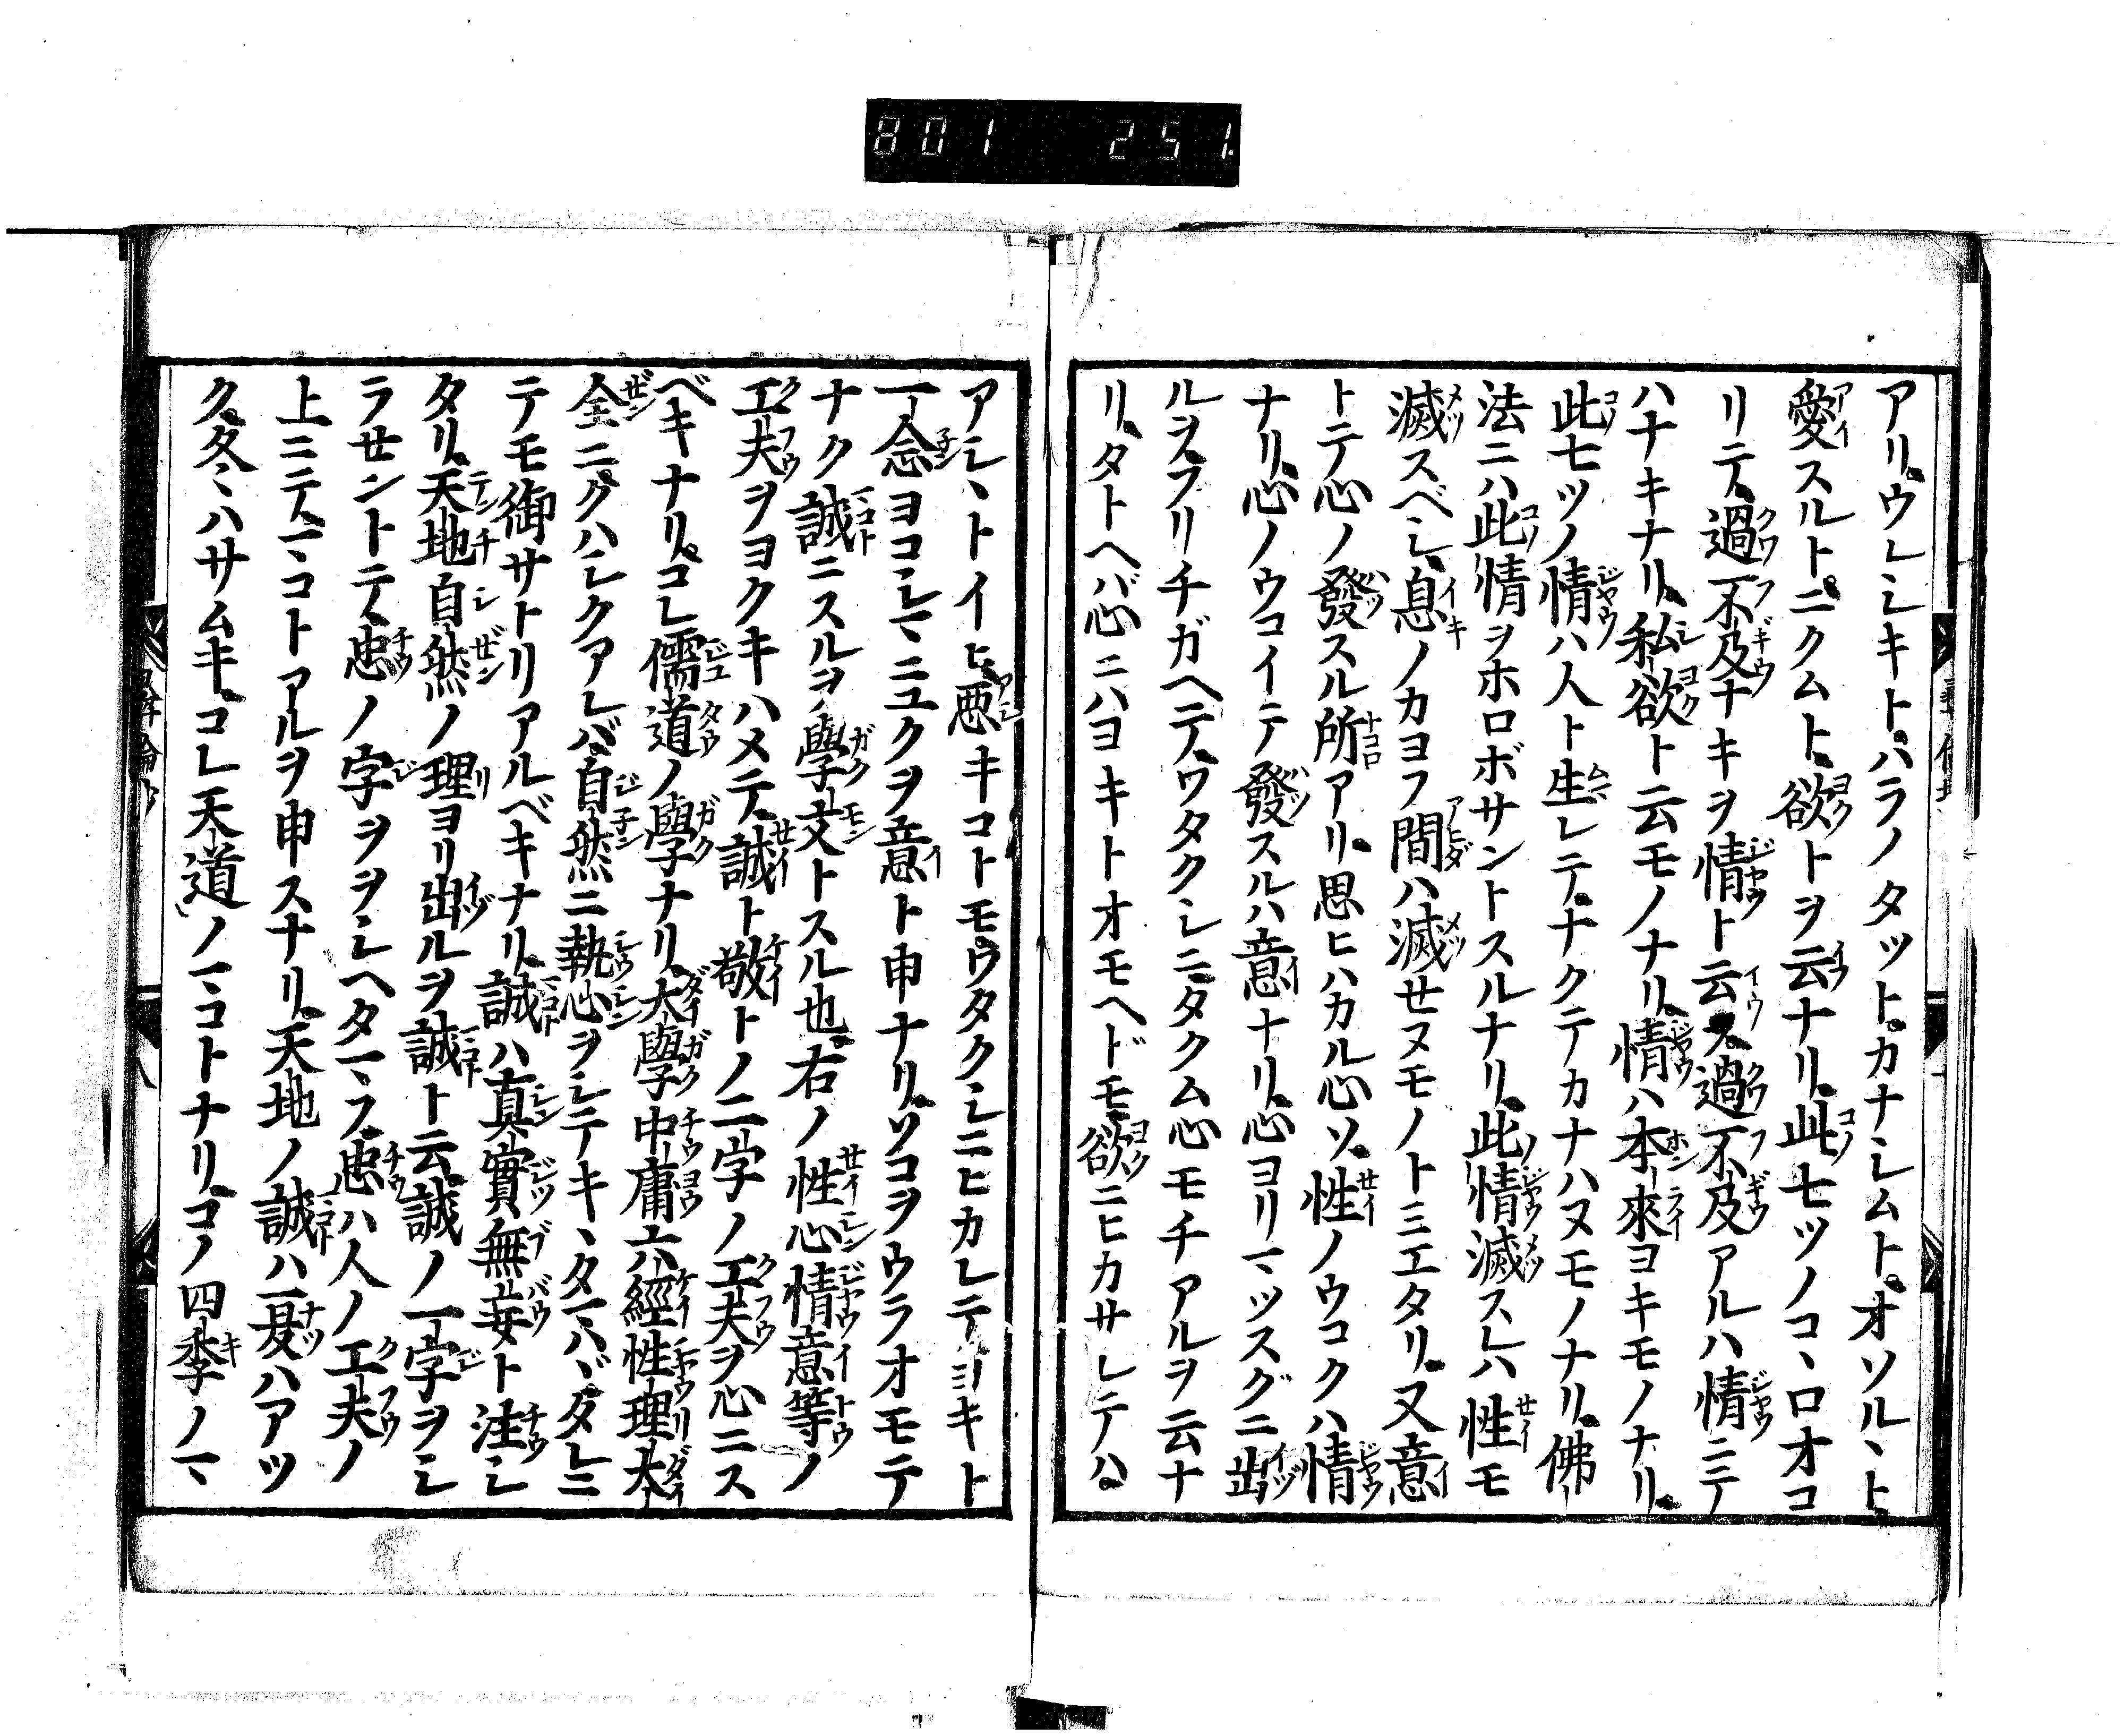 801 251
アリ。ウレシキト。ハラノタツト。カナシムト。オソルヽト。
愛スルト。ニクムト。欲トヲ云ナリ。此七ツノコヽロオコ
リテ。過不及ナキヲ情ト云ス。過不及アルハ情ニテ
ハナキナリ。私欲ト云モノナリ。情ハ本來ヨキモノナリ。
此七ツノ情ハ人ト生レテ。ナクテカナハヌモノナリ。佛
法ニハ此情ヲホロボサントスルナリ。此情滅スレハ性モ
滅スベシ。息ノカヨフ間ハ滅セヌモノトミエタリ。又意
トテ心ノ發スル所アリ。思ヒハカル心ソ。性ノウコクハ情
ナリ。心ノウコイテ發スルハ意ナリ。心ヨリマツスグニ出
ルヲ。フリチガヘテ。ワタクシニ。タクム心モチアルヲ云ナ
リ。タトヘバ心ニハヨキトオモヘドモ。欲ニヒカサレテハ。
アシヽトイヒ。悪キコトモ。ワタクシニヒカレテ。ヨキト
一念ヨコシマニユクヲ意ト申ナリ。ソコヲウラオモテ
ナク誠ニスルヲ。學文トスル也。右ノ性心情意等ノ
工夫ヲヨクキハメテ。誠ト敬トノ二字ノ工夫ヲ心ニス
ベキナリ。コレ儒道ノ學ナリ。大學中庸六經性理大
全ニ。クハシクアレバ。自然ニ執心ヲシテキヽタマハヾ。タレニ
テモ御サトリアルベキナリ。誠ハ真實無妄ト注シ
タリ。天地自然ノ理ヨリ出ルヲ誠ト云。誠ノ一字ヲシ
ラセントテ。忠ノ字ヲヲシヘタマフ。忠ハ人ノ工夫ノ
上ニテマコトアルヲ申スナリ。天地ノ誠ハ夏ハアツ
ク。冬ハサムキ。コレ天道ノマコトナリ。コノ四季ノマ